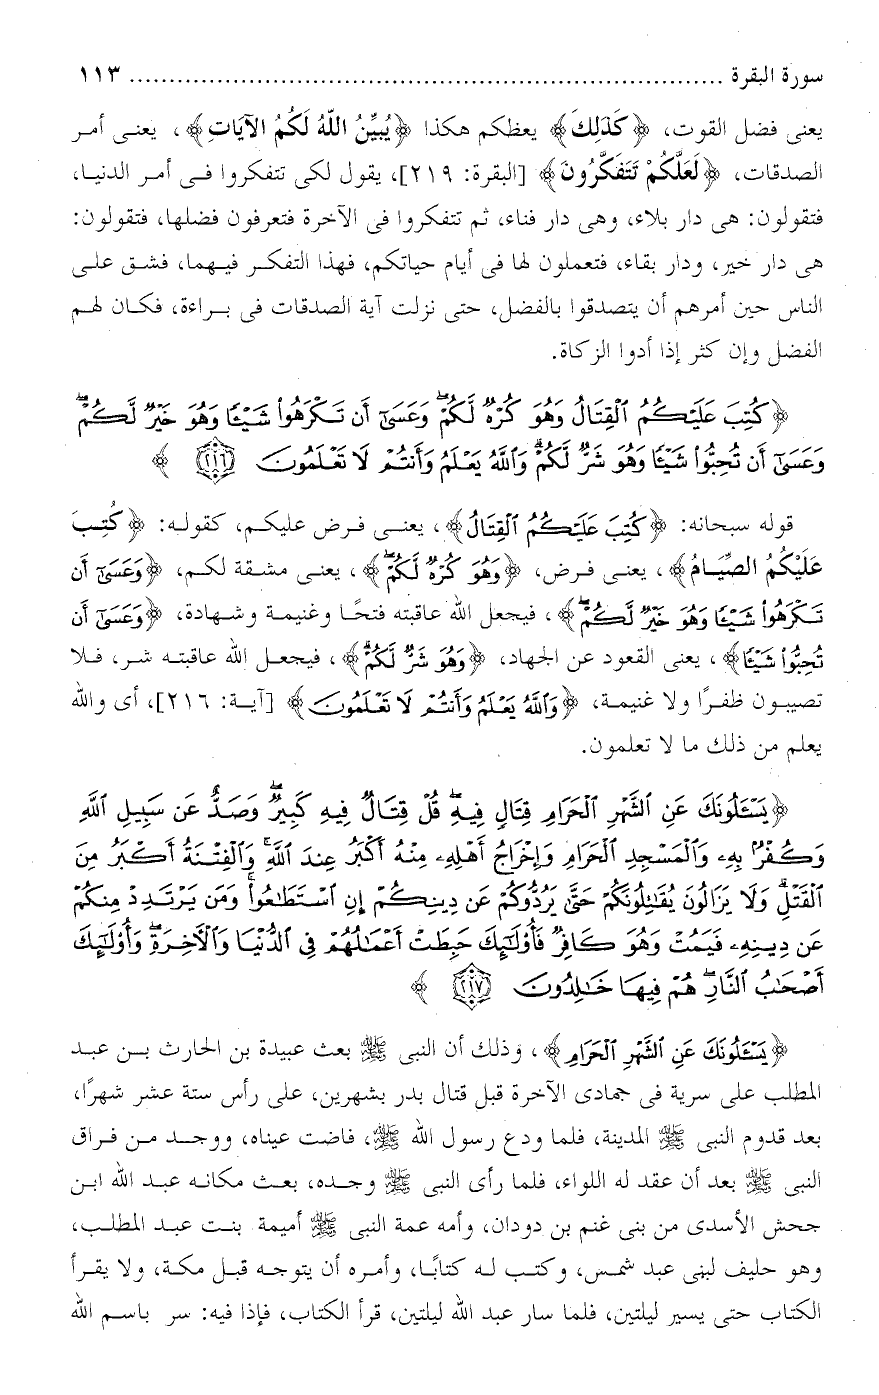 سورة البقرة ........................................................................... ١١٣
يعنى فضل القوت، ﴿كَذَلِكَ﴾ يعظكم هكذا ﴿يُبيِّنُ اللَّهُ لَكُمُ الآيَاتِ﴾، يعنى أمر
الصدقات، ﴿لَعَلَّكُمْ تَتَفَكَّرُونَ﴾ [البقرة: ٢١٩]، يقول لكى تتفكروا فى أمر الدنيا،
فتقولون: هى دار بلاء، وهى دار فناء، ثم تتفكروا فى الآخرة فتعرفون فضلها، فتقولون:
هى دار خير، ودار بقاء، فتعملون لها فى أيام حياتكم، فهذا التفكر فيهما، فشق على
الناس حين أمرهم أن يتصدقوا بالفضل، حتى نزلت آية الصدقات فى براءة، فكان لهم
الفضل وإن كثر إذا أدوا الزكاة.
﴿كُتِبَ عَلَيْكُمُ ٱلْقِتَالُ وَهُوَ كُرْهٌ لَّكُمْ ۖ وَعَسَىٰٓ أَن تَكْرَهُوا۟ شَيْـًٔا وَهُوَ خَيْرٌ لَّكُمْ ۖ
وَعَسَىٰٓ أَن تُحِبُّوا۟ شَيْـًٔا وَهُوَ شَرٌّ لَّكُمْ ۗ وَٱللَّهُ يَعْلَمُ وَأَنتُمْ لَا تَعْلَمُونَ ٢١٦﴾
قوله سبحانه: ﴿كُتِبَ عَلَيْكُمُ ٱلْقِتَالُ﴾، يعنى فرض عليكم، كقوله: ﴿كُتِبَ
عَلَيْكُمُ الصِّيَامُ﴾، يعنى فرض، ﴿وَهُوَ كُرْهٌ لَّكُمْ ۖ﴾، يعنى مشقة لكم، ﴿وَعَسَىٰٓ أَن
تَكْرَهُوا۟ شَيْـًٔا وَهُوَ خَيْرٌ لَّكُمْ ۖ﴾، فيجعل الله عاقبته فتحًا وغنيمة وشهادة، ﴿وَعَسَىٰٓ أَن
تُحِبُّوا۟ شَيْـًٔا﴾، يعنى القعود عن الجهاد، ﴿وَهُوَ شَرٌّ لَّكُمْ ۗ﴾، فيجعل الله عاقبته شر، فلا
تصيبون ظفرًا ولا غنيمة، ﴿وَٱللَّهُ يَعْلَمُ وَأَنتُمْ لَا تَعْلَمُونَ﴾ [آية: ٢١٦]، أى والله
يعلم من ذلك ما لا تعلمون.
﴿يَسْـَٔلُونَكَ عَنِ ٱلشَّهْرِ ٱلْحَرَامِ قِتَالٍ فِيهِ ۖ قُلْ قِتَالٌ فِيهِ كَبِيرٌ ۖ وَصَدٌّ عَن سَبِيلِ ٱللَّهِ
وَكُفْرٌۢ بِهِۦ وَٱلْمَسْجِدِ ٱلْحَرَامِ وَإِخْرَاجُ أَهْلِهِۦ مِنْهُ أَكْبَرُ عِندَ ٱللَّهِ ۚ وَٱلْفِتْنَةُ أَكْبَرُ مِنَ
ٱلْقَتْلِ ۗ وَلَا يَزَالُونَ يُقَـٰتِلُونَكُمْ حَتَّىٰ يَرُدُّوكُمْ عَن دِينِكُمْ إِنِ ٱسْتَطَـٰعُوا۟ ۚ وَمَن يَرْتَدِدْ مِنكُمْ
عَن دِينِهِۦ فَيَمُتْ وَهُوَ كَافِرٌ فَأُو۟لَـٰٓئِكَ حَبِطَتْ أَعْمَـٰلُهُمْ فِى ٱلدُّنْيَا وَٱلْـَٔاخِرَةِ ۖ وَأُو۟لَـٰٓئِكَ
أَصْحَـٰبُ ٱلنَّارِ ۖ هُمْ فِيهَا خَـٰلِدُونَ ٢١٧﴾
﴿يَسْـَٔلُونَكَ عَنِ ٱلشَّهْرِ ٱلْحَرَامِ﴾، وذلك أن النبى ﷺ بعث عبيدة بن الحارث بن عبد
المطلب على سرية فى جمادى الآخرة قبل قتال بدر بشهرين، على رأس ستة عشر شهرًا،
بعد قدوم النبى ﷺ المدينة، فلما ودع رسول الله ﷺ، فاضت عيناه، ووجد من فراق
النبى ﷺ بعد أن عقد له اللواء، فلما رأى النبى ﷺ وجده، بعث مكانه عبد الله ابن
جحش الأسدى من بنى غنم بن دودان، وأمه عمة النبى ﷺ أميمة بنت عبد المطلب،
وهو حليف لبنى عبد شمس، وكتب له كتابًا، وأمره أن يتوجه قبل مكة، ولا يقرأ
الكتاب حتى يسير ليلتين، فلما سار عبد الله ليلتين، قرأ الكتاب، فإذا فيه: سر باسم الله